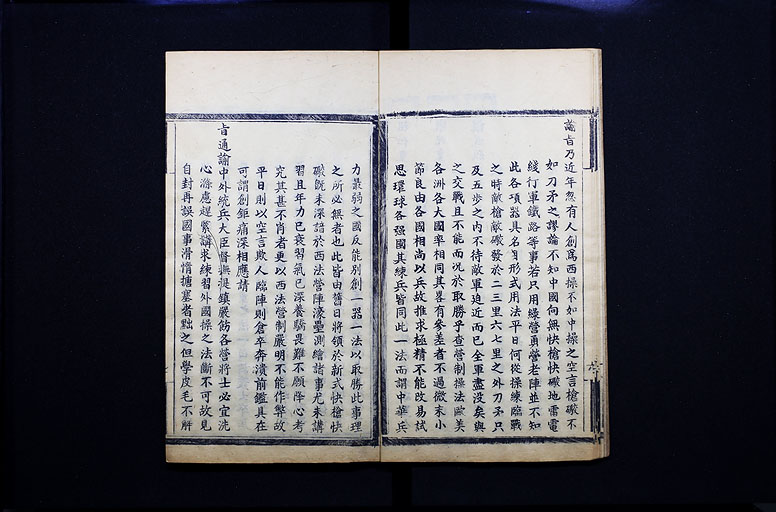 諭旨乃近年忽有人創爲西操不如中操之空言槍礮不
如刀矛之謬論不知中國向無快槍快礮地雷電
綫行軍鐵路等事若只用綠營勇營老陣並不知
此各項器具名目形式用法平日何從操練臨戰
之時敵槍敵礮發於二三里六七里之外刀矛只
及五步之内不待敵軍迫近而已全軍盡没矣與
之交戰且不能而况於取勝乎查營制操法歐美
各洲各大國率相同其畧有參差者不過微末小
節良由各國相尚以兵故推求極精不能改易試
思環球各强國其練兵皆同此一法而謂中華兵
力最弱之國反能别創一器一法以取勝此事理
之所必無者也此皆由舊日將領於新式快槍快
礮旣未深諳於西法營陣濠壘測繪諸事尤未講
習且年力已衰習氣已深養驕畏難不願降心考
究其甚不肖者更以西法營制嚴明不能作弊故
平日則以空言欺人臨陣則倉卒奔潰前鑑具在
可謂創鉅痛深相應請
旨通諭中外統兵大臣督撫提鎮嚴飭各營將士必宜洗
心滌慮趕緊講求練習外國操之法斷不可故見
自封再誤國事滑惰搪塞者黜之但學皮毛不解